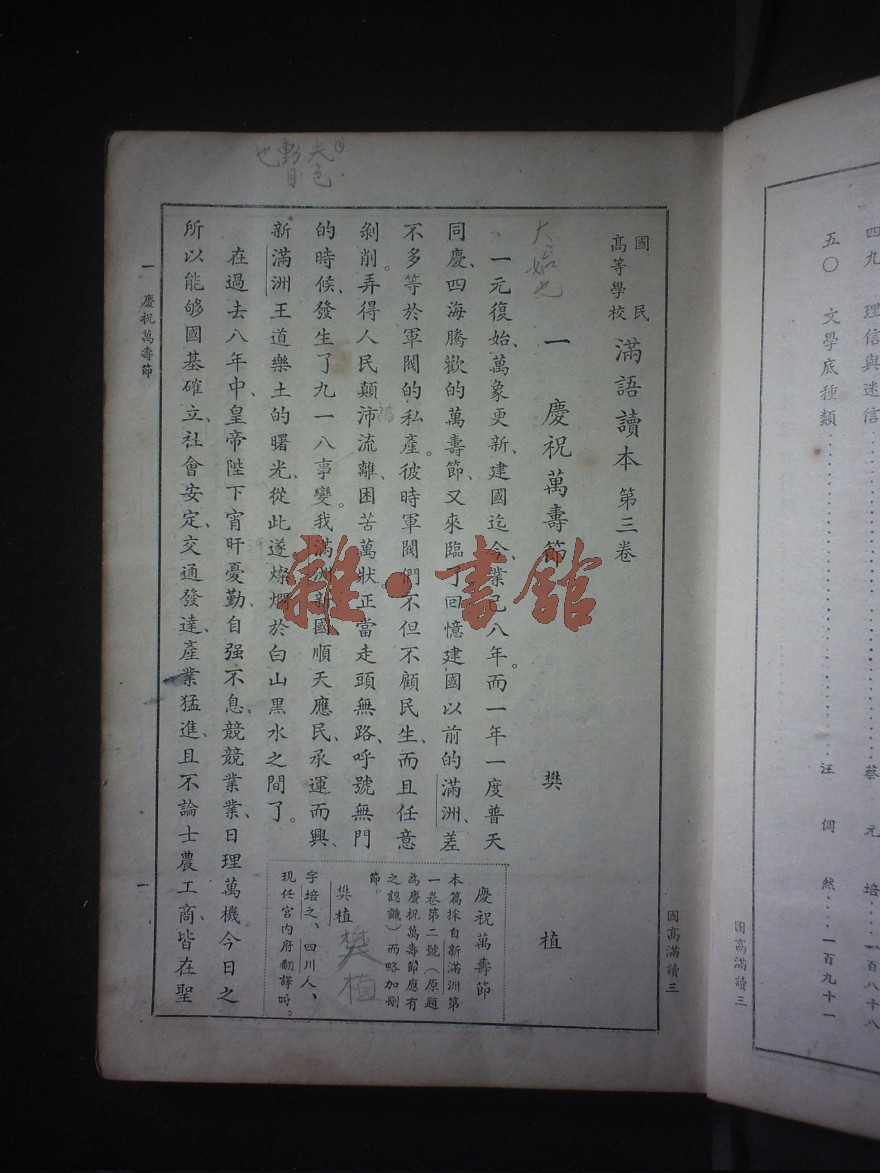 四九　理信與迷信……蔡元培…一百八十八
五〇　文學底種類……汪倜然…一百九十一
國高滿讀三
國民
高等學校
滿語讀本 第三卷
一　慶祝萬壽節　樊　植
大始也
一元復始、萬象更新、建國迄今業已八年。而一年一度普天
同慶、四海騰歡的萬壽節、又來臨了。回憶建國以前的滿洲、差
不多等於軍閥的私產。彼時軍閥們不但不顧民生、而且任意
剝削。弄得人民顛沛流離、困苦萬狀。正當走頭無路、呼號無門
的時候、發生了九一八事變。我滿洲新國順天應民、承運而興、
新滿洲王道樂土的曙光、從此遂燦爛於白山黑水之間了。
在過去八年中、皇帝陛下宵旰憂勤、自强不息、競競業業、日理萬機。今日之
所以能够國基確立、社會安定、交通發達、產業猛進、且不論士農工商、皆在聖
慶祝萬壽節
本篇採自新滿洲第
一卷第二號（原題
為慶祝萬壽節應有
之認識）而略加刪
節。
樊植
樊植
字培之、四川人、
現任宮內府翻譯官。
一　慶祝萬壽節
一
國高滿讀三
雜·書館